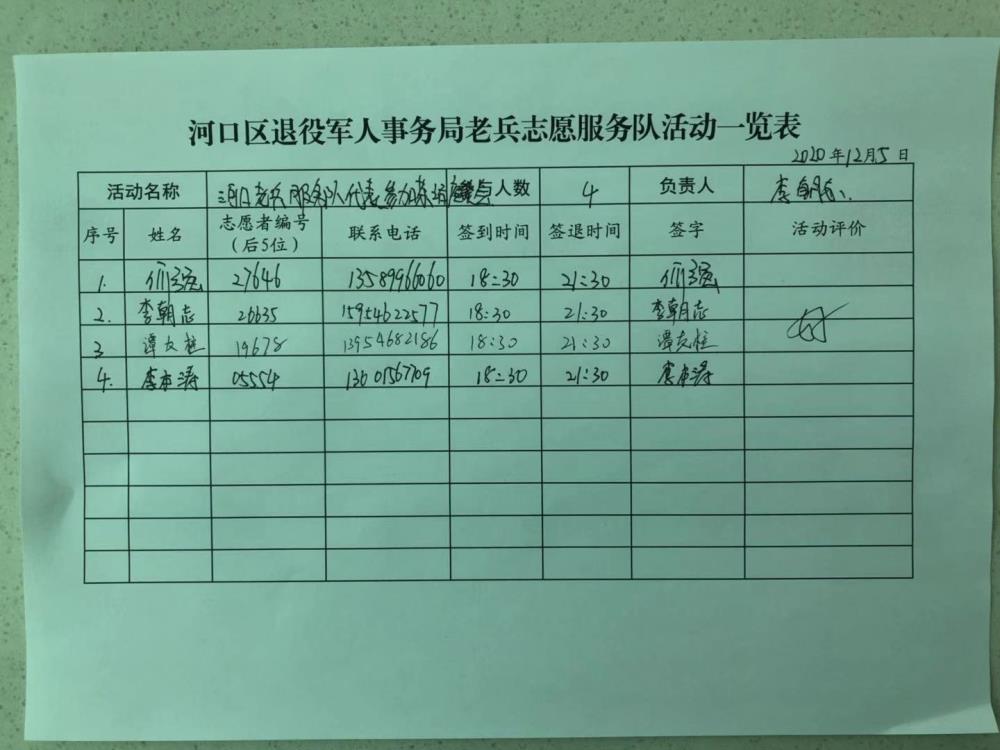 河口区退役军人事务局老兵志愿服务队活动一览表
2020年12月5日
活动名称 河口老兵服务队代表参加 参与人数 4 负责人 李朝志
序号 姓名 志愿者编号（后5位） 联系电话 签到时间 签退时间 签字 活动评价
1. 27646 13589966060 18:30 21:30
2. 李朝志 26635 15954622577 18:30 21:30 李朝志
3 谭友柱 19678 13954682186 18:30 21:30 谭友柱
4. 李本涛 05554 13601567709 18:30 21:30 李本涛